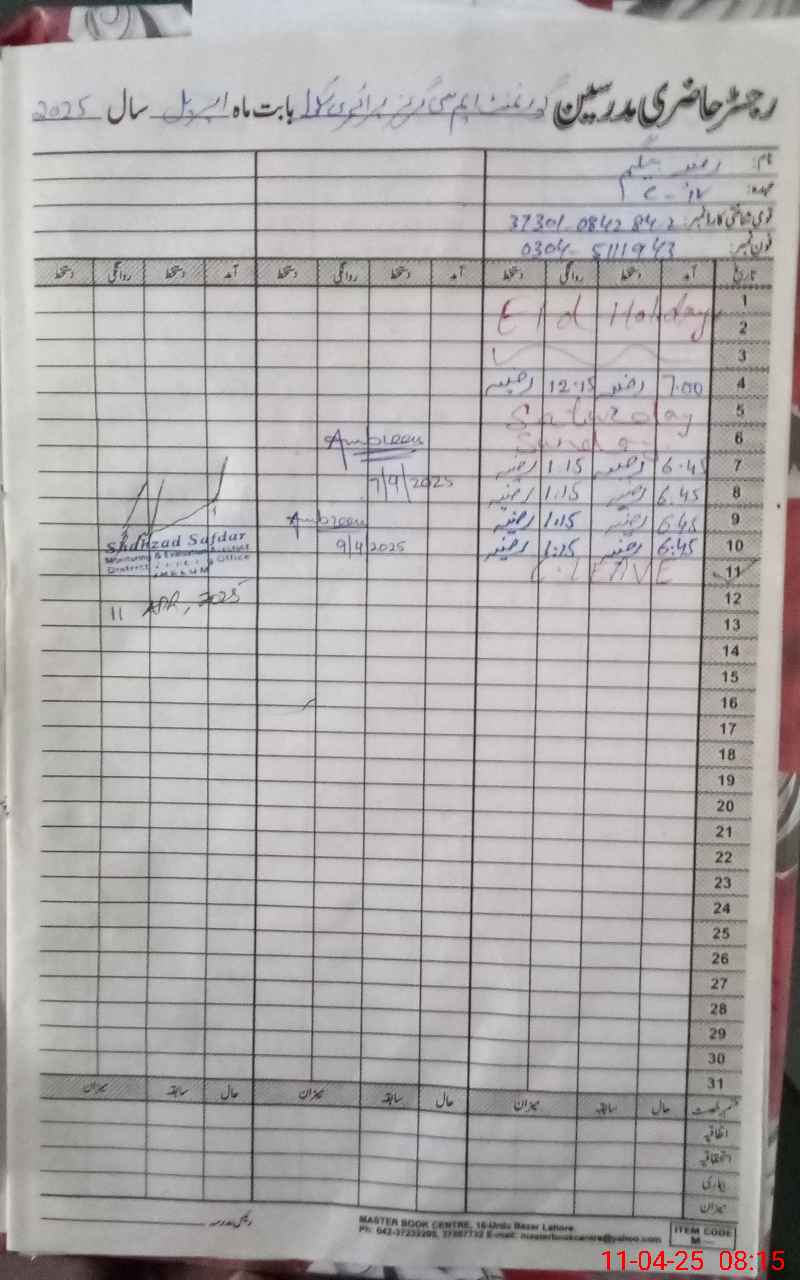 رجسٹر حاضری مدرسین گورنمنٹ ایم سی گرلز پرائمری سکول بابت ماہ اپریل سال 2025
نام: رضیہ بیگم
عہدہ:
قومی شناختی کارڈ نمبر: 37301-0842 84-2
فون نمبر: 0304-5111943
تاریخ آمد دستخط روانگی دستخط آمد دستخط روانگی دستخط آمد دستخط روانگی دستخط
1 Eid Holiday
2
3
4 7.00 رضیہ 12.15 رضیہ
5 Saturday
6 Sunday Ambreen
7 6.45 رضیہ 1.15 رضیہ 7/4/2025
8 6.45 رضیہ 1.15 رضیہ
9 6:45 رضیہ 1:15 رضیہ Ambreen
10 6:45 رضیہ 1:15 رضیہ 9/4/2025
Shahzad Safdar
Monitoring & Evaluation Assistant
District Office
JHELUM
11 C.LEAVE
11 APR, 2025
12
13
14
15
16
17
18
19
20
21
22
23
24
25
26
27
28
29
30
31
قسم رخصت حال سابقہ میزان حال سابقہ میزان حال سابقہ میزان
اتفاقیہ
استحقاقیہ
بیماری
میزان
رئیس مدرسہ
MASTER BOOK CENTRE, 16-Urdu Bazar Lahore.
Ph: 042-37233205, E-mail: masterbookcentre@yahoo.com
ITEM CODE
M
11-04-25 08:15